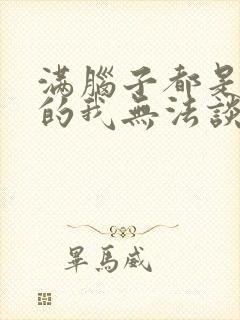 滿腦子都是
的我無法談
畢馬威